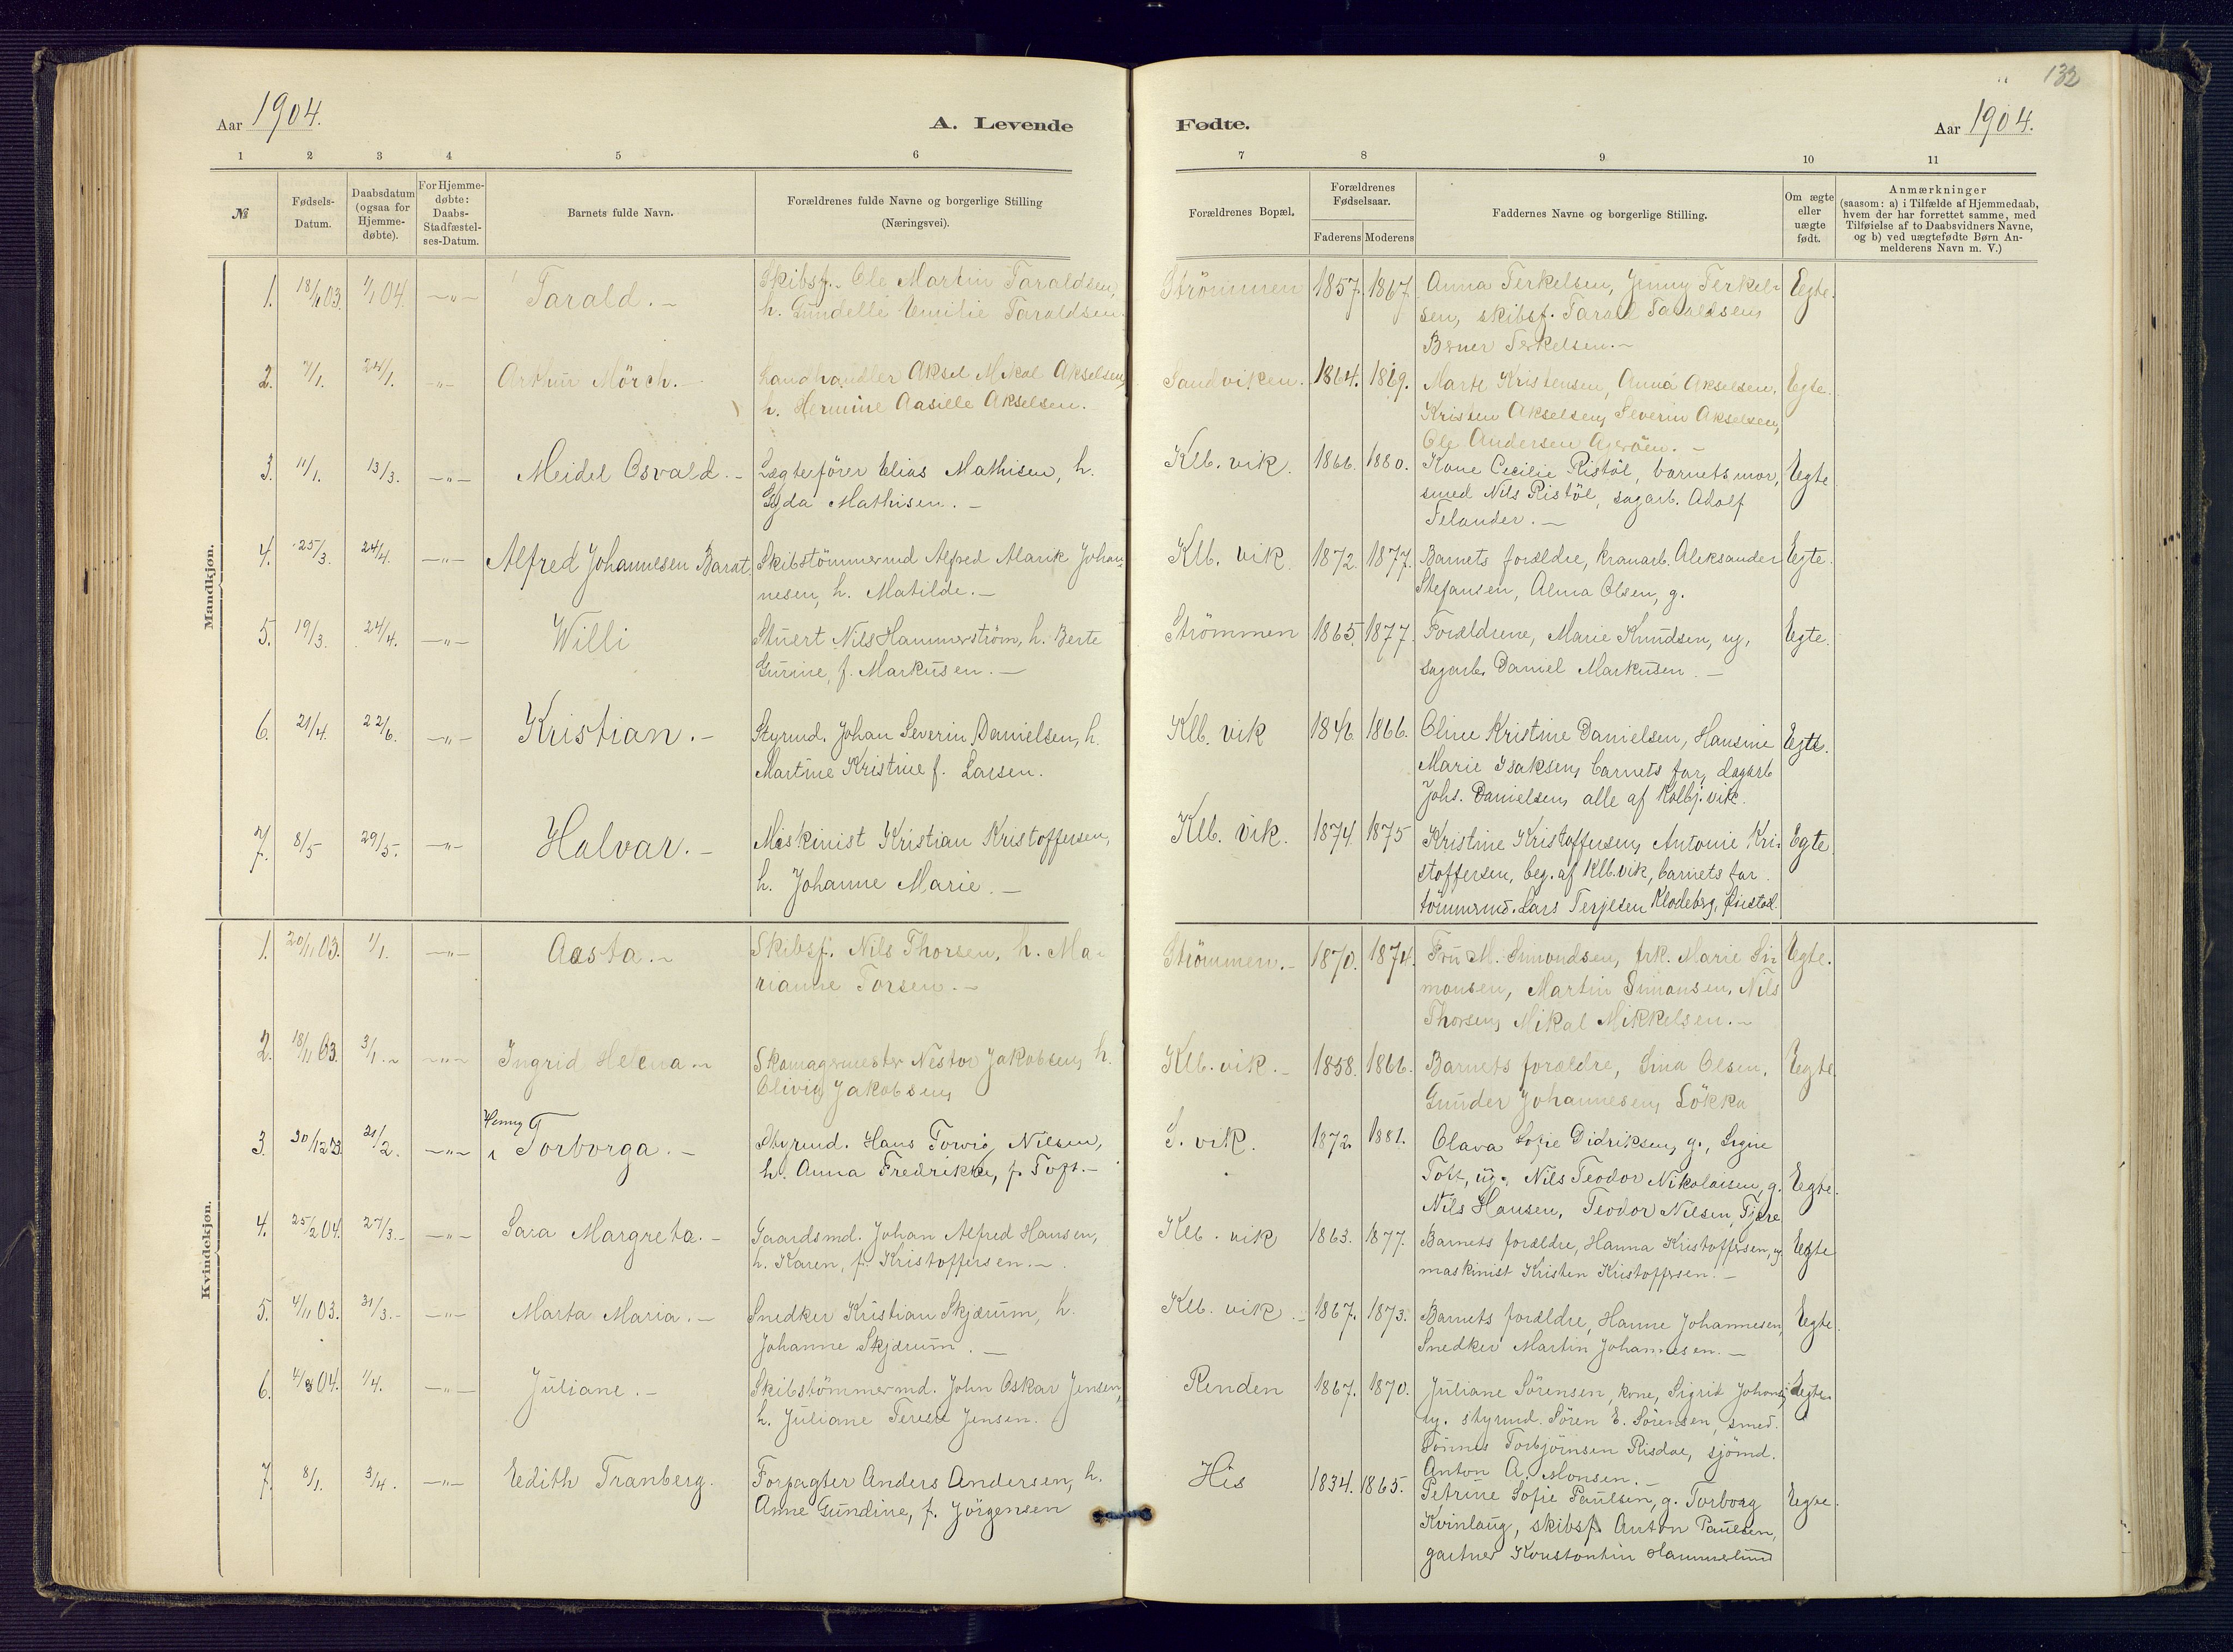 132
Aar 1904.
A. Levende
Fødte.
Aar 1904.
1 2 3 4 5 6 7 8 9 10 11
№
Fødsels-
Datum.
Daabsdatum
(ogsaa for
Hjemme-
døbte).
For Hjemme-
døbte:
Daabs-
Stadfæstel-
ses-Datum.
Barnets fulde Navn.
Forældrenes fulde Navne og borgerlige Stilling
(Næringsvei).
Forældrenes Bopæl.
Forældrenes
Fødselsaar.
Faderens Moderens
Faddernes Navne og borgerlige Stilling.
Om ægte
eller
uægte
født.
Anmærkninger
(saasom: a) i Tilfælde af Hjemmedaab,
hvem der har forrettet samme, med
Tilføielse af to Daabsvidners Navne,
og b) ved uægtefødte Børn An-
melderens Navn m. V.)
Mandkjøn.
1. 03. 1/1 04. —"— Tarald. —
Skibsf. Ole Martin Taraldsen,
h. Gundelle Emilie Taraldsen.
Strömmen 1857. 1867.
Anna Terkelsen, Jenny Terkel-
sen, skibsf. Tarald Taraldsen,
Berner Terkelsen. —
Egte.
2. 7/1. 24/1. —"— Arthur Mörch. —
Landhandler Aksel Mikal Akselsen,
h. Hermine Aasille Akselsen.
Sandviken. 1864. 1869.
Marte Kristensen, Anna Akselsen,
Kristen Akselsen, Severin Akselsen,
Ole Andersen Gjeröen. —
Egte.
3. 11/1. 13/3. —"— Meidel Osvald. —
Lægterförer Elias Mathisen, h.
Gyda Mathisen. —
Klb. vik. 1866. 1880.
Kone Cecilie Ristöl, barnets mor,
smed Nils Ristöl, sagarb. Adolf
Telander. —
Egte
4. 25/3. 24/4. —"— Alfred Johannesen Barat
Skibstömmermd Alfred Marik Johan-
nesen, h. Matilde. —
Klb. vik. 1872. 1877.
Barnets forældre, kranarb. Aleksander
Stefansen, Alma Olsen, g.
Egte.
5. 19/3. 24/4. —"— Willi
Stuert Nils Hammerström, h. Berte
Gurine, f. Markusen. —
Strömmen 1865. 1877.
Forældrene, Marie Knudsen, ug,
sagarb. Daniel Markusen. —
Egte.
6. 21/4. 22/6. —"— Kristian. —
Styrmd. Johan Severin Danielsen, h.
Martine Kristine f. Larsen.
Klb. vik 1866.
Oline Kristine Danielsen, Hansine
Marie Isaksen, barnets far, dagarb
Johs. Danielsen, alle af Kolbj.vik.
Egte.
7. 8/5 29/5. —"— Halvar. —
Maskinist Kristian Kristoffersen,
h. Johanne Marie. —
Klb. vik. 1874. 1875
Kristine Kristoffersen, Antonie Kri-
stoffersen, beg. af Klb.vik, barnets far
tömmermd. Lars Terjesen Klodeberg,
Egte
Kvindekjøn.
1. 20/11 03. 1/1. —"— Aasta. —
Skibsf. Nils Thorsen, h. Ma-
rianne Torsen. —
Strömmen. — 1870. 1874.
Fru M. Simondsen, frk. Marie Si-
monsen, Martin Simonsen, Nils
Thorsen, Mikal Mikkelsen. —
Egte.
2. 18/11 03. 3/1. — —"— Ingrid Helena. —
Skomagermester Nestor Jakobsen, h.
Olivia Jakobsen,
Klb. vik. — 1858. 1866.
Barnets forældre, Sina Olsen,
Gunder Johannesen, Lökka
Egte.
3. 30/12 03. 21/2. —"— Henny Torborga. —
Styrmd. Hans Torvig Nilsen,
h. Anna Fredrikke, f. Toft. —
S. vik. 1872 1881.
Olava Sofie Didriksen, g., Signe
Toft, ug., Nils Teodor Nikolaisen, g.
Nils Hansen, Teodor Nilsen, Tjore
Egte.
4. 25/2 04. 27/3. — —"— Sara Margreta. —
Gaardsmd. Johan Alfred Hansen,
h. Karen, f. Kristoffersen. —
Klb. vik 1863. 1877.
Barnets forældre, Hanna Kristoffersen, ug
maskinist Kristen Kristoffersen. —
Egte
5. 4/11 03. 31/3. — —"— Marta Maria. —
Snedker Kristian Skjærum, h.
Johanne Skjærum. —
Klb. vik. — 1867. 1873.
Barnets forældre, Hanne Johannesen,
Snedker Martin Johannesen. —
Egte.
6. 4/3 04. 1/4. —"— Juliane. —
Skibstömmermd. John Oskar Jensen,
h. Juliane Terese Jensen.
Renden 1867. 1870.
Juliane Sörensen, kone, Sigrid
ug. styrmd. Sören E. Sörensen, smed.
Tönnes Torbjörnsen Risdal, sjömd.
Anton A. Monsen. —
Egte.
7. 8/1. 3/4. —"— Edith Tranberg.
Forpagter Anders Andersen, h.
Anne Gundine, f. Jörgensen
His 1834. 1865.
Petrine Sofie Paulsen, g. Torborg
Kvinlaug, skibsf. Anton Paulsen,
gartner Konstantin Hammerlund
Egte.